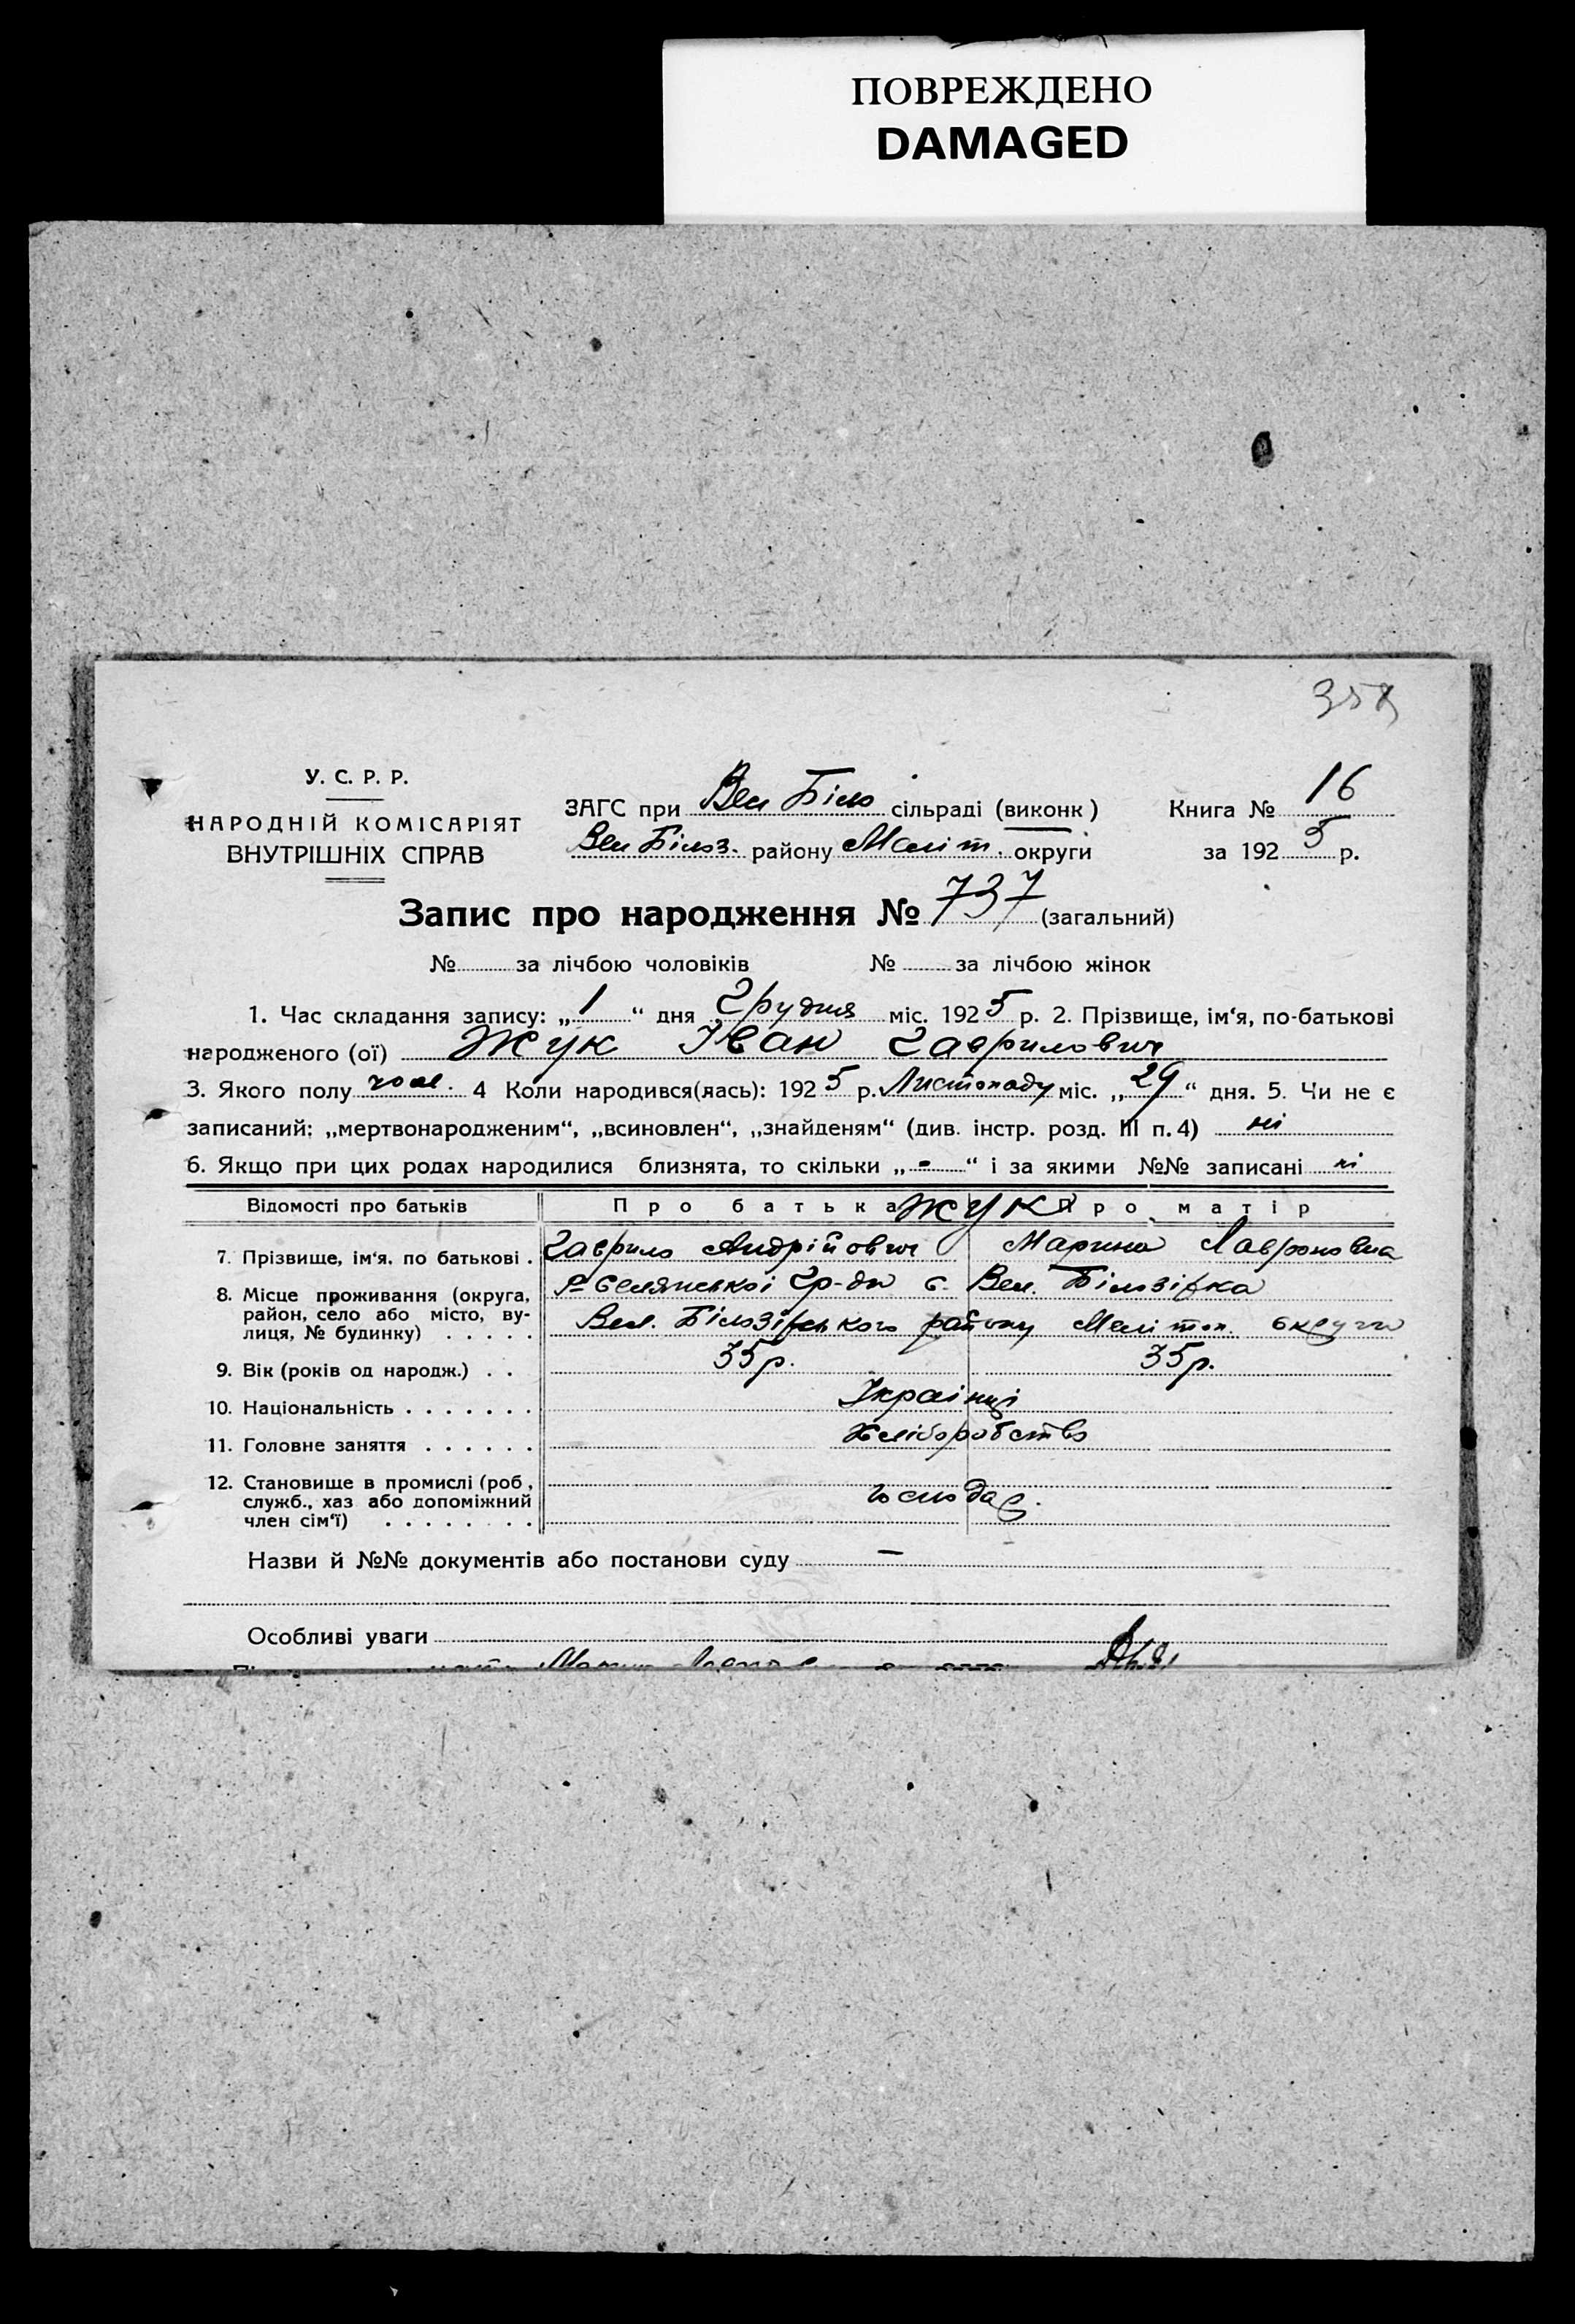 ПОВРЕЖДЕНО
DAMAGED
У. С. Р. Р.
НАРОДНІЙ КОМІСАРІЯТ
ВНУТРІШНІХ СПРАВ
ЗАГС при Вел Біло сільраді (виконк)
Вел Білоз. району Меліт. округи
Книга № 16
за 1925 р.
Запис про народження № 737 (загальний)
№ за лічбою чоловіків № за лічбою жінок
1. Час складання запису: „1“ дня Грудня міс. 1925 р. 2. Прізвище, ім‘я, по-батькові
народженого (ої) Жук Іван Гаврилович
3. Якого полу чол. 4 Коли народився(лась): 1925 р. Листопаду міс. „29“ дня. 5. Чи не є
записаний: „мертвонародженим“, „всиновлен“, „знайденям“ (див. інстр. розд. III п. 4) ні
6. Якщо при цих родах народилися близнята, то скільки „-“ і за якими №№ записані ні
Відомості про батьків Про батька Жук Про матір
7. Прізвище, ім‘я. по батькові . Гаврило Андрійович Марина
8. Місце проживання (округа,
район, село або місто, ву-
лиця, № будинку) . . . . .
Селянської гр-ди с. Вел. Білозірка
Вел. Білозірського району Мелітоп. округи
9. Вік (років од народж.) . . 35 р. 35 р.
10. Національність . . . . . . . Українці
11. Головне заняття . . . . . . Хліборобство
12. Становище в промислі (роб,
служб., хаз або допоміжний
член сім‘ї) . . . . . . . .
господар.
Назви й №№ документів або постанови суду —
Особливі уваги